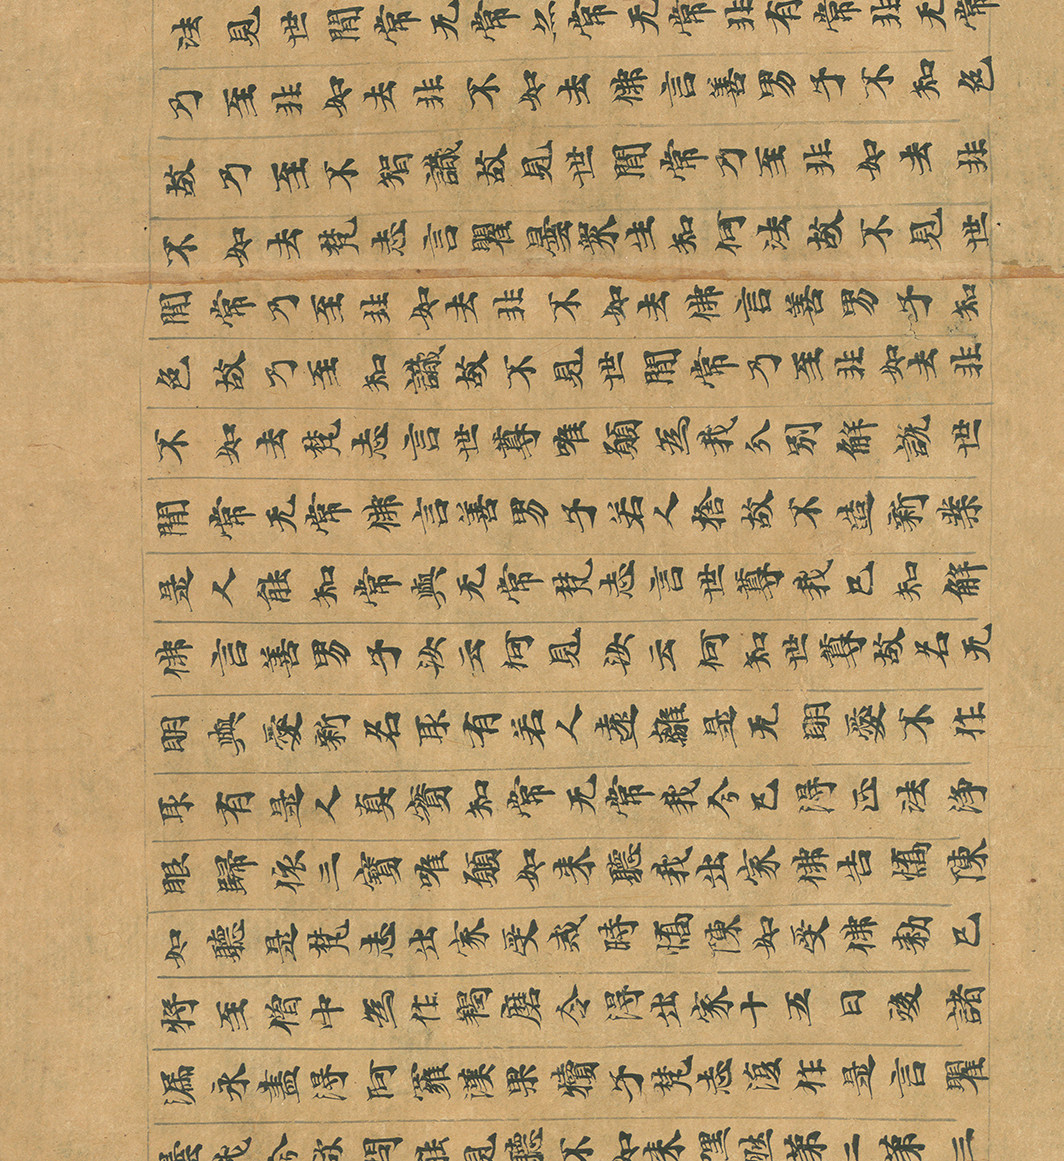 法見世間常无常亦常无常非有常非无常
乃至非如去非不如去佛言善男子不知色
故乃至不智識故見世間常乃至非如去非
不如去梵志言瞿曇眾生知何法故不見世
間常乃至非如去非不如去佛言善男子知
色故乃至知識故不見世間常乃至非如去非
不如去梵志言世尊唯願為我分別解說世
間常无常佛言善男子若人捨故不造新業
是人能知常與无常梵志言世尊我已知解
佛言善男子汝云何見汝云何知世尊故名无
明與愛新名取有若人遠離是无明愛不作
取有是人真實知常无常我今已得正法淨
眼歸依三寶唯願如來聽我出家佛告憍陳
如聽是梵志出家受戒時憍陳如受佛敕已
將至僧中為作羯磨令得出家十五日後諸
漏永盡得阿羅漢果犢子梵志復作是言瞿
曇我今欲問能見聽不如來嘿然第二第三